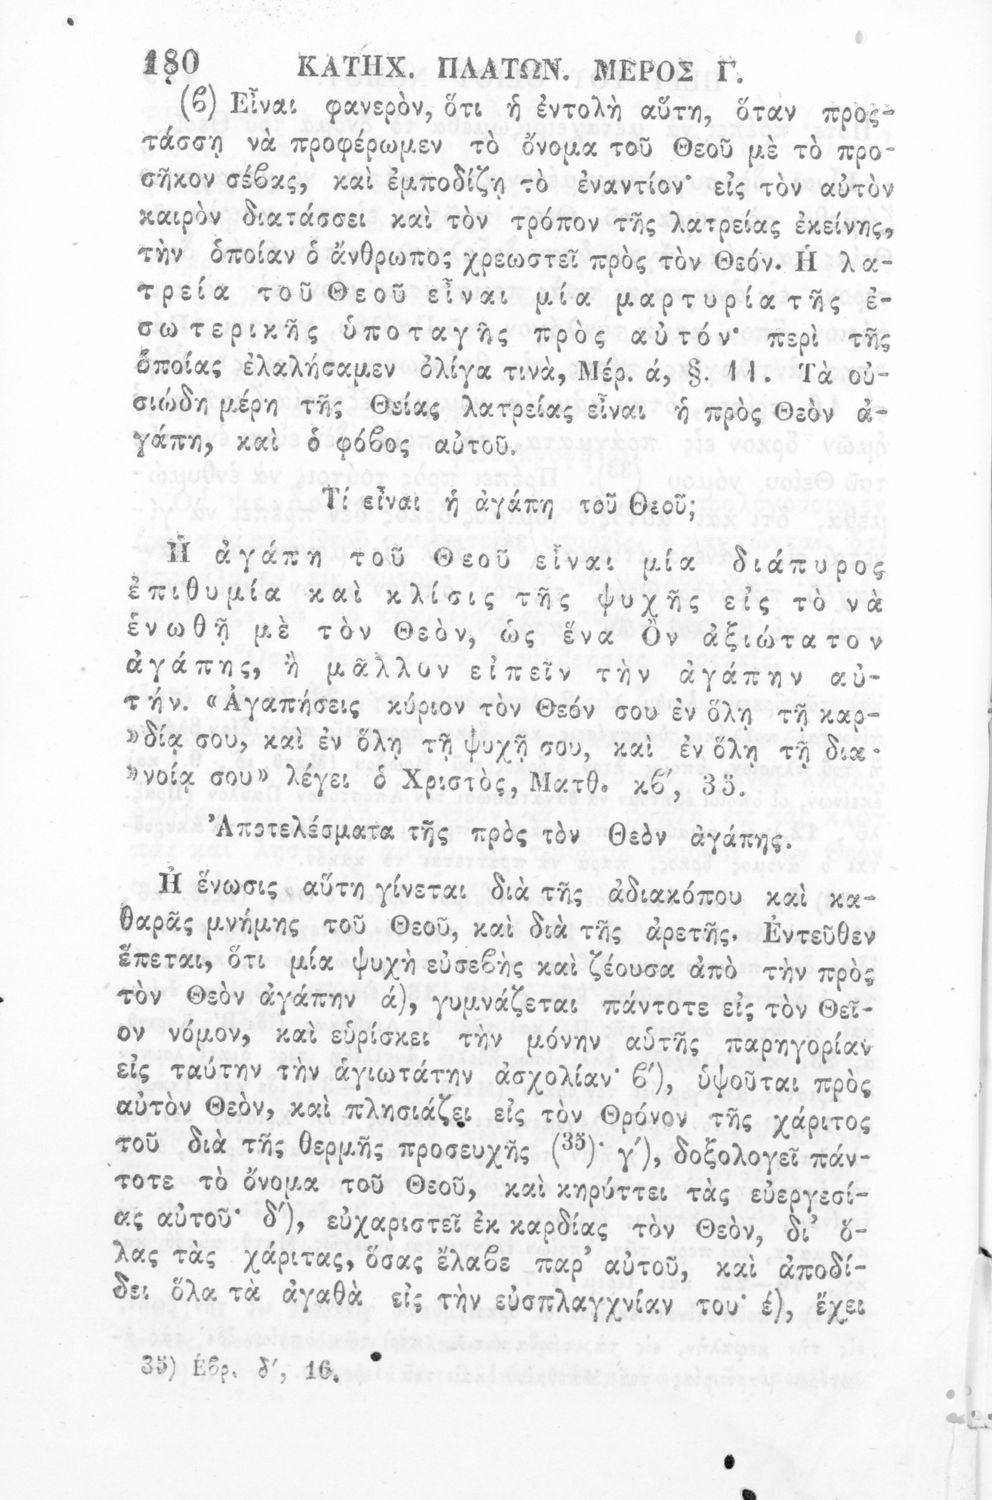 180 ΚΑΤΗΧ. ΠΛΑΤΩΝ. ΜΕΡΟΣ Γ'.
(ϐ) Εἶναι φανερὸν, ὅτι ἡ ἐντολὴ αὕτη, ὅταν προς-
τάσσῃ νὰ προφέρωμεν τὸ ὄνομα τοῦ Θεοῦ μὲ τὸ προ-
σῆκον σέϐας, καὶ ἐμποδίζῃ τὸ ἐναντίον· εἰς τὸν αὐτὸν
καιρὸν διατάσσει καὶ τὸν τρόπον τῆς λατρείας ἐκείνης,
τὴν ὁποίαν ὁ ἄνθρωπος χρεωστεῖ πρὸς τὸν Θεόν. Ἡ λα-
τρεία τοῦ Θεοῦ εἶναι μία μαρτυρία τῆς ἐ-
σωτερικῆς ὑποταγῆς πρὸς αὐτόν· περὶ τῆς
ὁποίας ἐλαλήσαμεν ὀλίγα τινὰ, Μέρ. ά, §. 11. Τὰ οὐ-
σιώδη μέρη τῆς Θείας λατρείας εἶναι ἡ πρὸς Θεὸν ἀ-
γάπη, καὶ ὁ φόϐος αὐτοῦ.
Τί εἶναι ἡ ἀγάπη τοῦ Θεοῦ;
Ἡ ἀγάπη τοῦ Θεοῦ εἶναι μία διάπυρος
ἐπιθυμία καὶ κλίσις τῆς ψυχῆς εἰς τὸ νὰ
ἑνωθῇ μὲ τὸν Θεὸν, ὡς ἕνα Ὂν ἀξιώτατον
ἀγάπης, ἢ μᾶλλον εἰπεῖν τὴν ἀγάπην αὐ-
τήν. «Ἀγαπήσεις κύριον τὸν Θεόν σου ἐν ὅλῃ τῇ καρ-
»δίᾳ σου, καὶ ἐν ὅλῃ τῇ ψυχῇ σου, καὶ ἐν ὅλῃ τῇ δια-
»νοίᾳ σου» λέγει ὁ Χριστὸς, Ματθ. κϐ', 35.
Ἀποτελέσματα τῆς πρὸς τὸν Θεὸν ἀγάπης.
Ἡ ἕνωσις αὕτη γίνεται διὰ τῆς ἀδιακόπου καὶ κα-
θαρᾶς μνήμης τοῦ Θεοῦ, καὶ διὰ τῆς ἀρετῆς. Ἐντεῦθεν
ἕπεται, ὅτι μία ψυχὴ εὐσεϐὴς καὶ ζέουσα ἀπὸ τὴν πρὸς
τὸν Θεὸν ἀγάπην ά), γυμνάζεται πάντοτε εἰς τὸν Θεῖ-
ον νόμον, καὶ εὑρίσκει τὴν μόνην αὑτῆς παρηγορίαν
εἰς ταύτην τὴν ἁγιωτάτην ἀσχολίαν· ϐ'), ὑψοῦται πρὸς
αὐτὸν Θεὸν, καὶ πλησιάζει εἰς τὸν Θρόνον τῆς χάριτος
τοῦ διὰ τῆς θερμῆς προσευχῆς (35)· γ'), δοξολογεῖ πάν-
τοτε τὸ ὄνομα τοῦ Θεοῦ, καὶ κηρύττει τὰς εὐεργεσί-
ας αὐτοῦ· δ'), εὐχαριστεῖ ἐκ καρδίας τὸν Θεὸν, δι' ὅ-
λας τὰς χάριτας, ὅσας ἔλαϐε παρ' αὐτοῦ, καὶ ἀποδί-
δει ὅλα τὰ ἀγαθὰ εἰς τὴν εὐσπλαγχνίαν του· έ), ἔχει
35) Ἑϐρ. δ', 16.